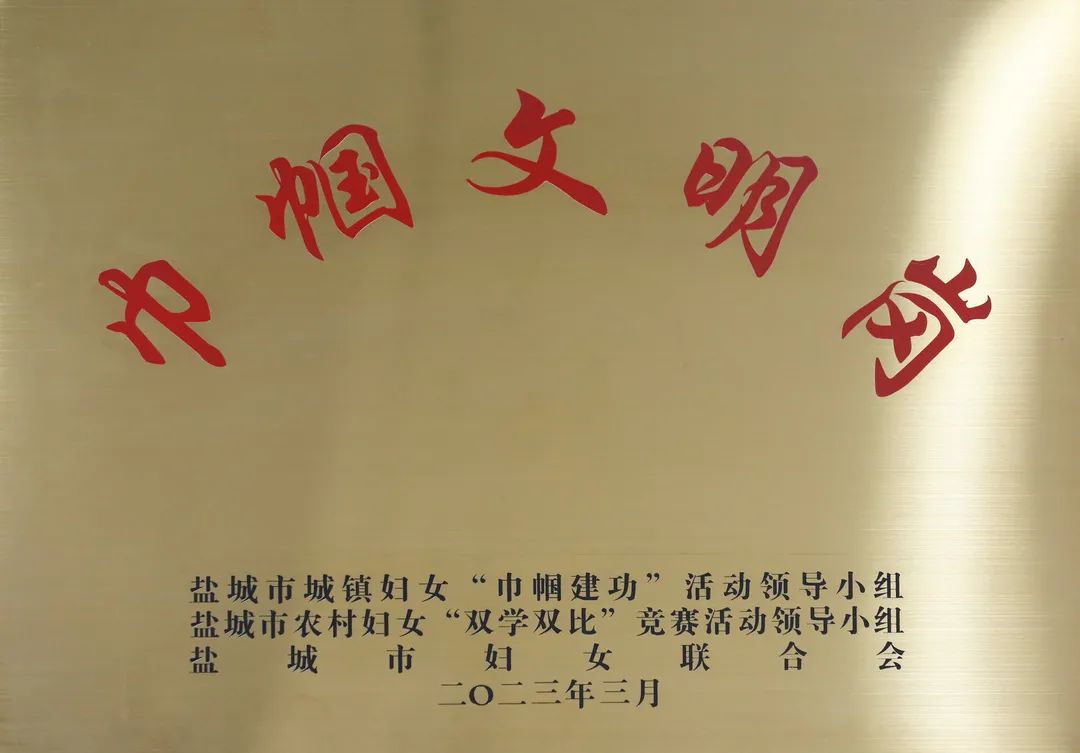 巾帼文明岗
盐城市城镇妇女“巾帼建功”活动领导小组
盐城市农村妇女“双学双比”竞赛活动领导小组
盐城市妇女联合会
二〇二三年三月